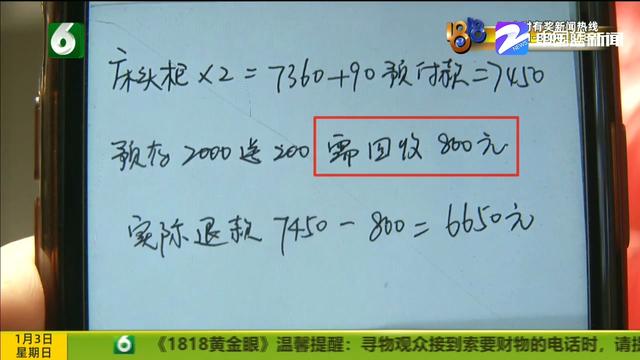 6
1818
有奖新闻热线
新闻
床头柜×2=7360+90预付款=7450
预存2000送200 需回收800元
实际退款 7450-800=6650元
1月3日
星期日
6
《1818黄金眼》温馨提醒：寻物观众接到索要财物的电话时，请